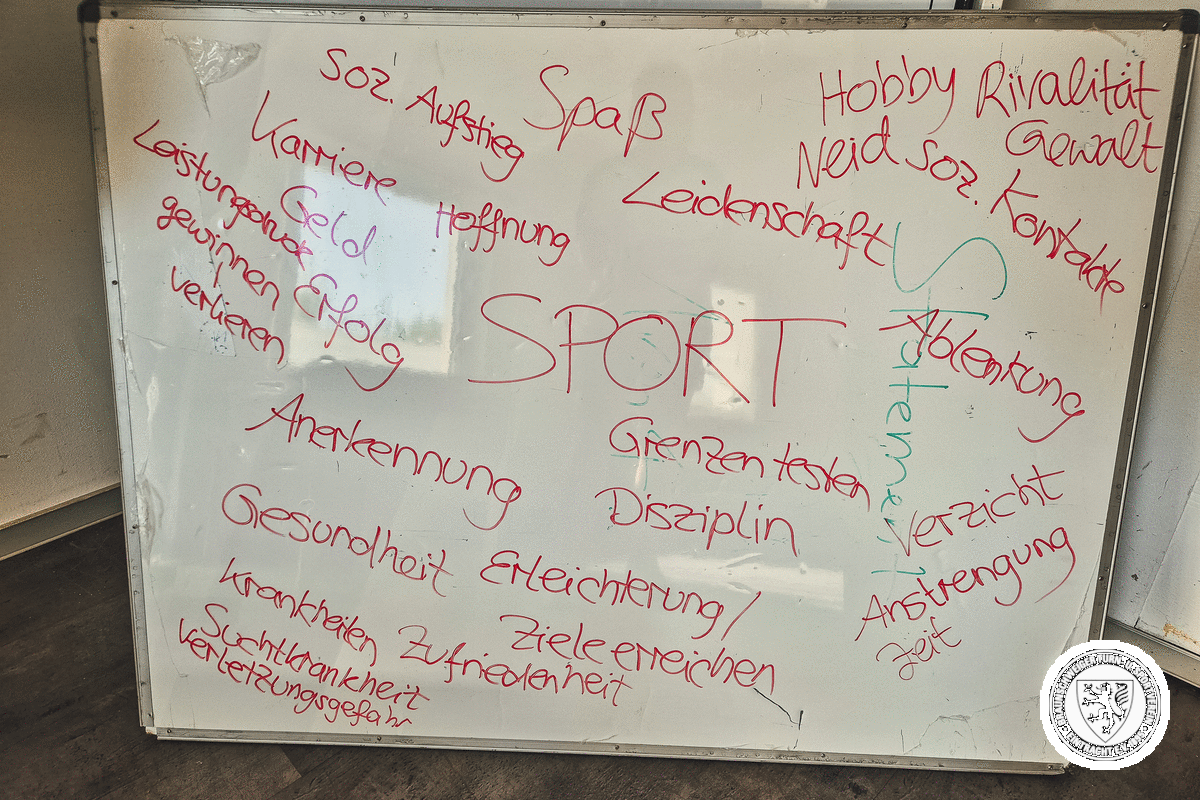 soz. Aufstieg
Spaß
Hobby
Rivalität
Gewalt
Neid
soz. Kontakte
Karriere
Leistungsdruck
Geld
Hoffnung
Leidenschaft
gewinnen
verlieren
Erfolg
SPORT
Statement
Ablenkung
Anerkennung
Grenzen testen
Disziplin
Verzicht
Anstrengung
Zeit
Gesundheit
Erleichterung/
Krankheiten
Ziele erreichen
Zufriedenheit
Suchtkrankheit
Verletzungsgefahr